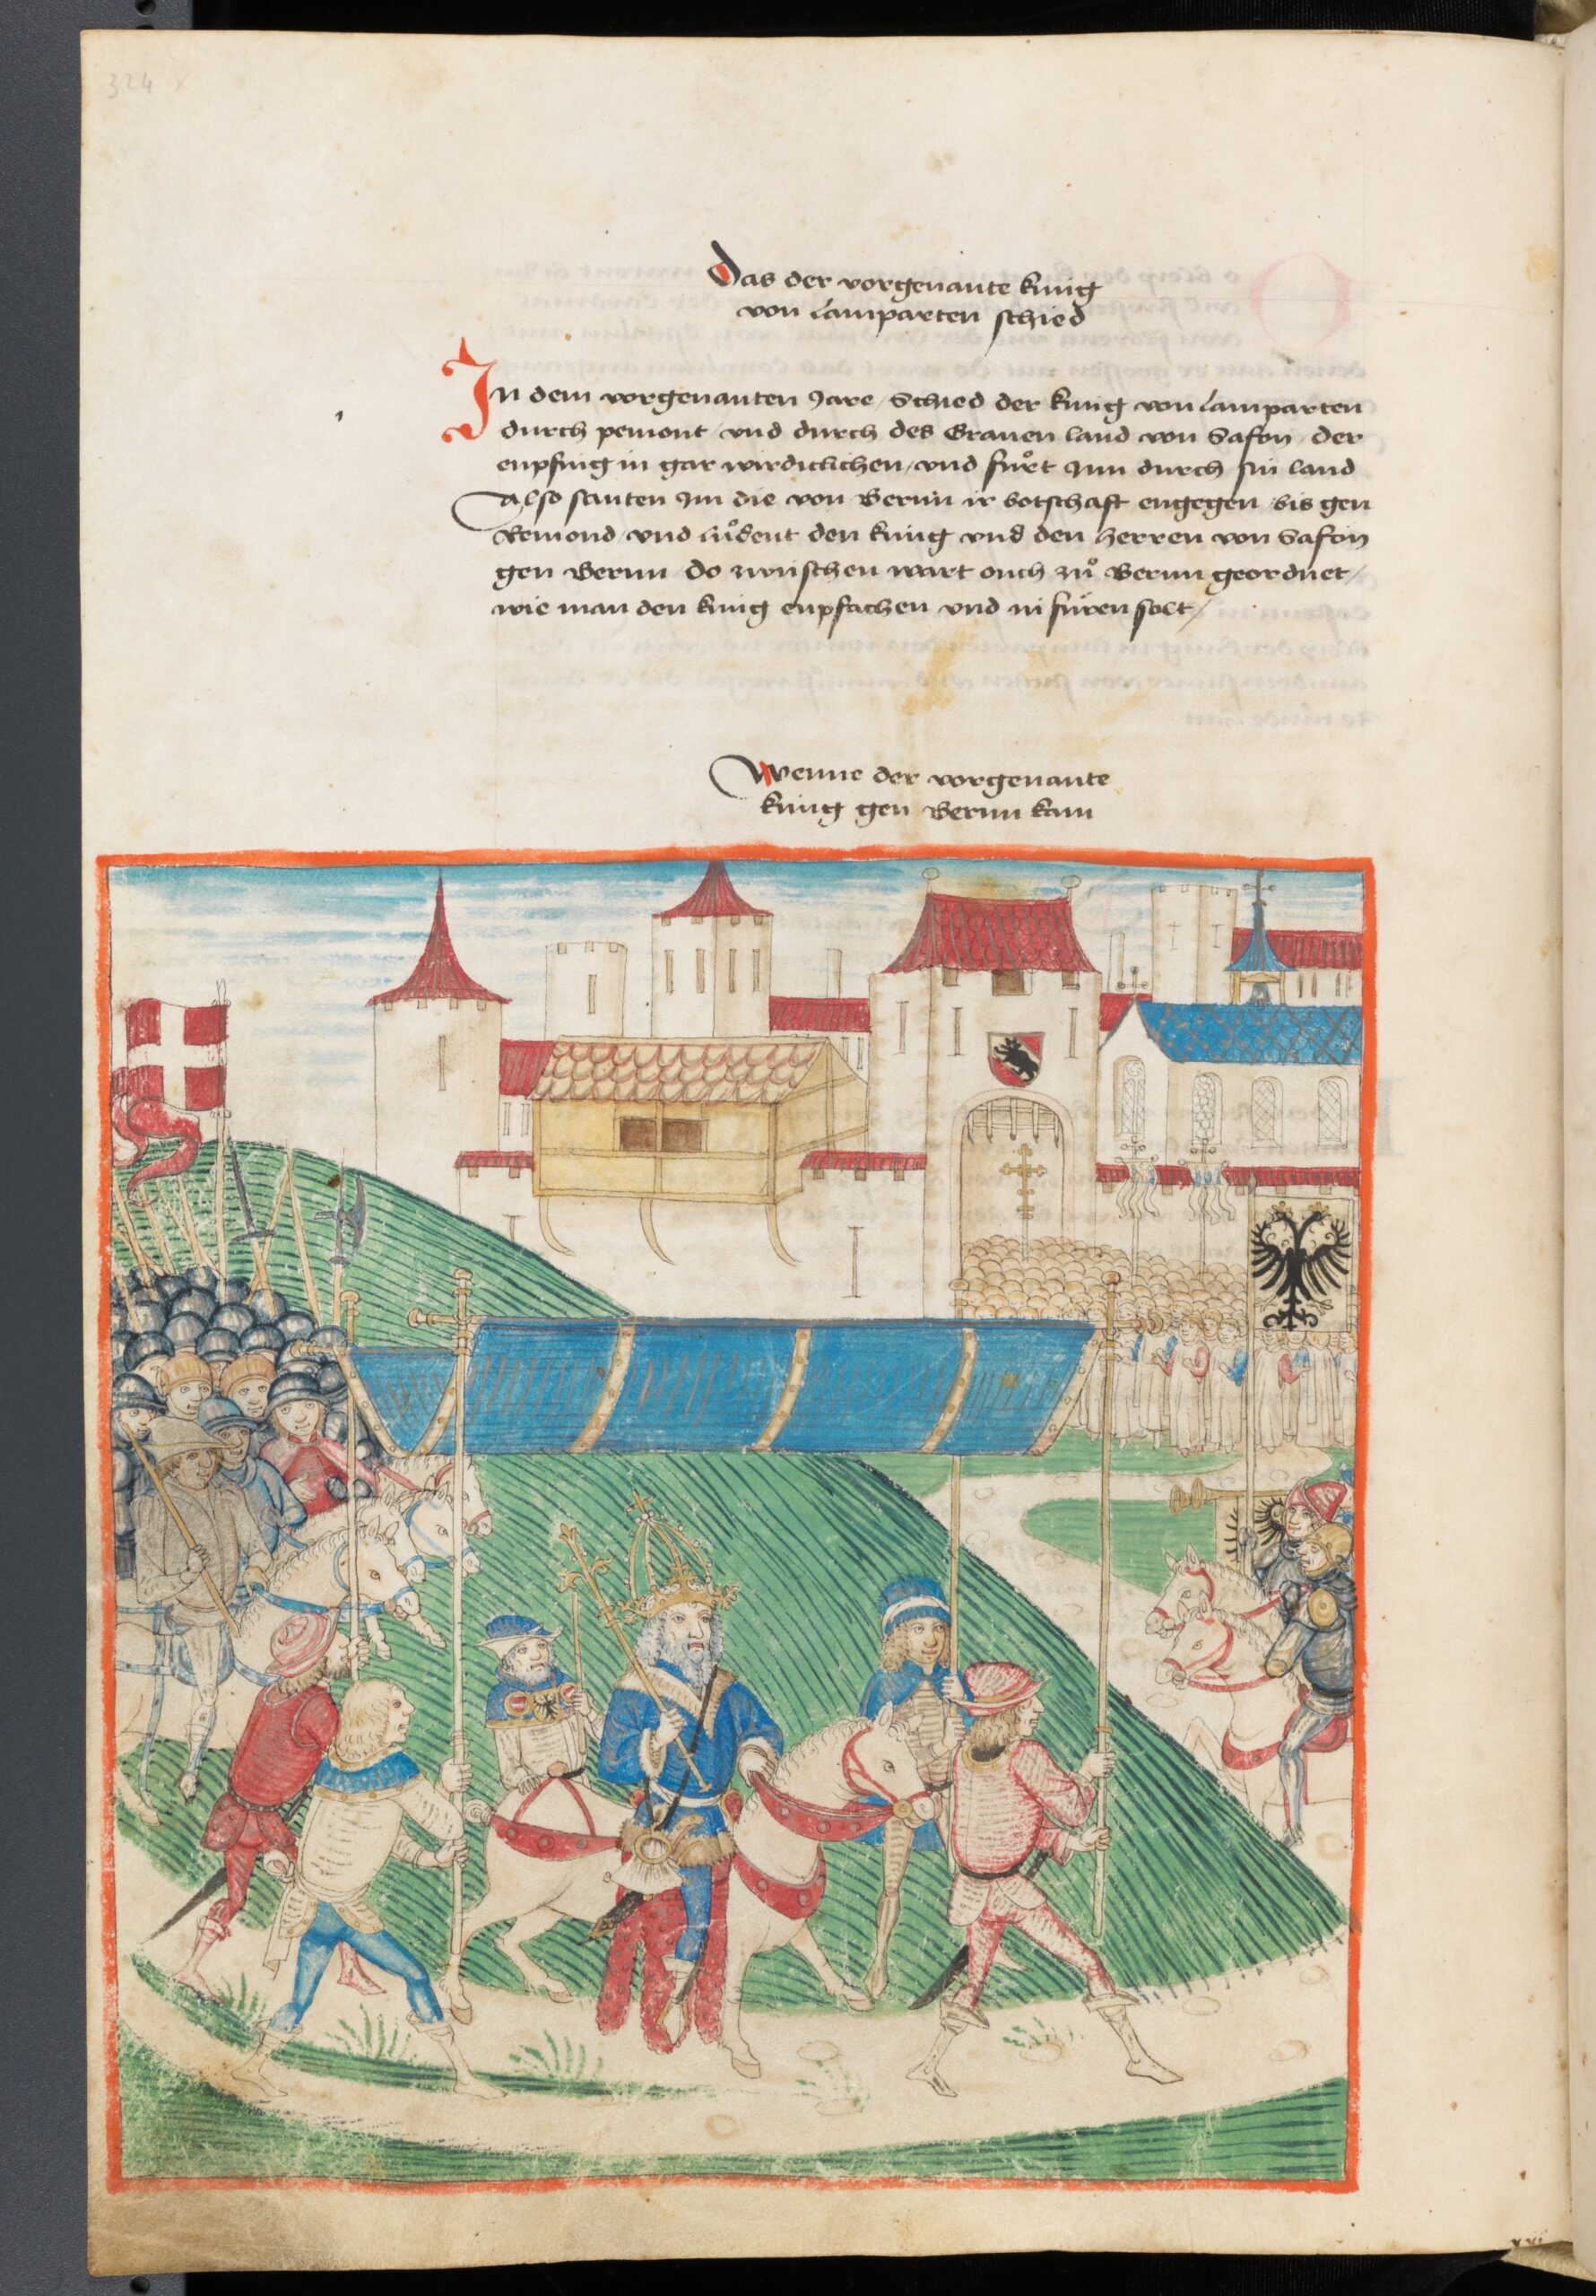 324
Das der vorgenante kung
von Lamparten schied
In dem vorgenanten Jare / Schied der kung von Lamparten
durch pemont / vnd durch des Grauen land von Safon / der
enpfing in gar wirdiclichen / vnd fuͦrt Jnn durch sin land
Also santen Jm die von Bernn ir botschaft engegen / bis gen
Remond / vnd luͦdent den kung vnd den herren von Safon
gen Bernn / Do zwuschen wart ouch zuͦ Bernn geordnet /
wie man den kung enpfachen vnd in fuͤren solt /
Wenne der vorgenante
kung gen Bernn kam